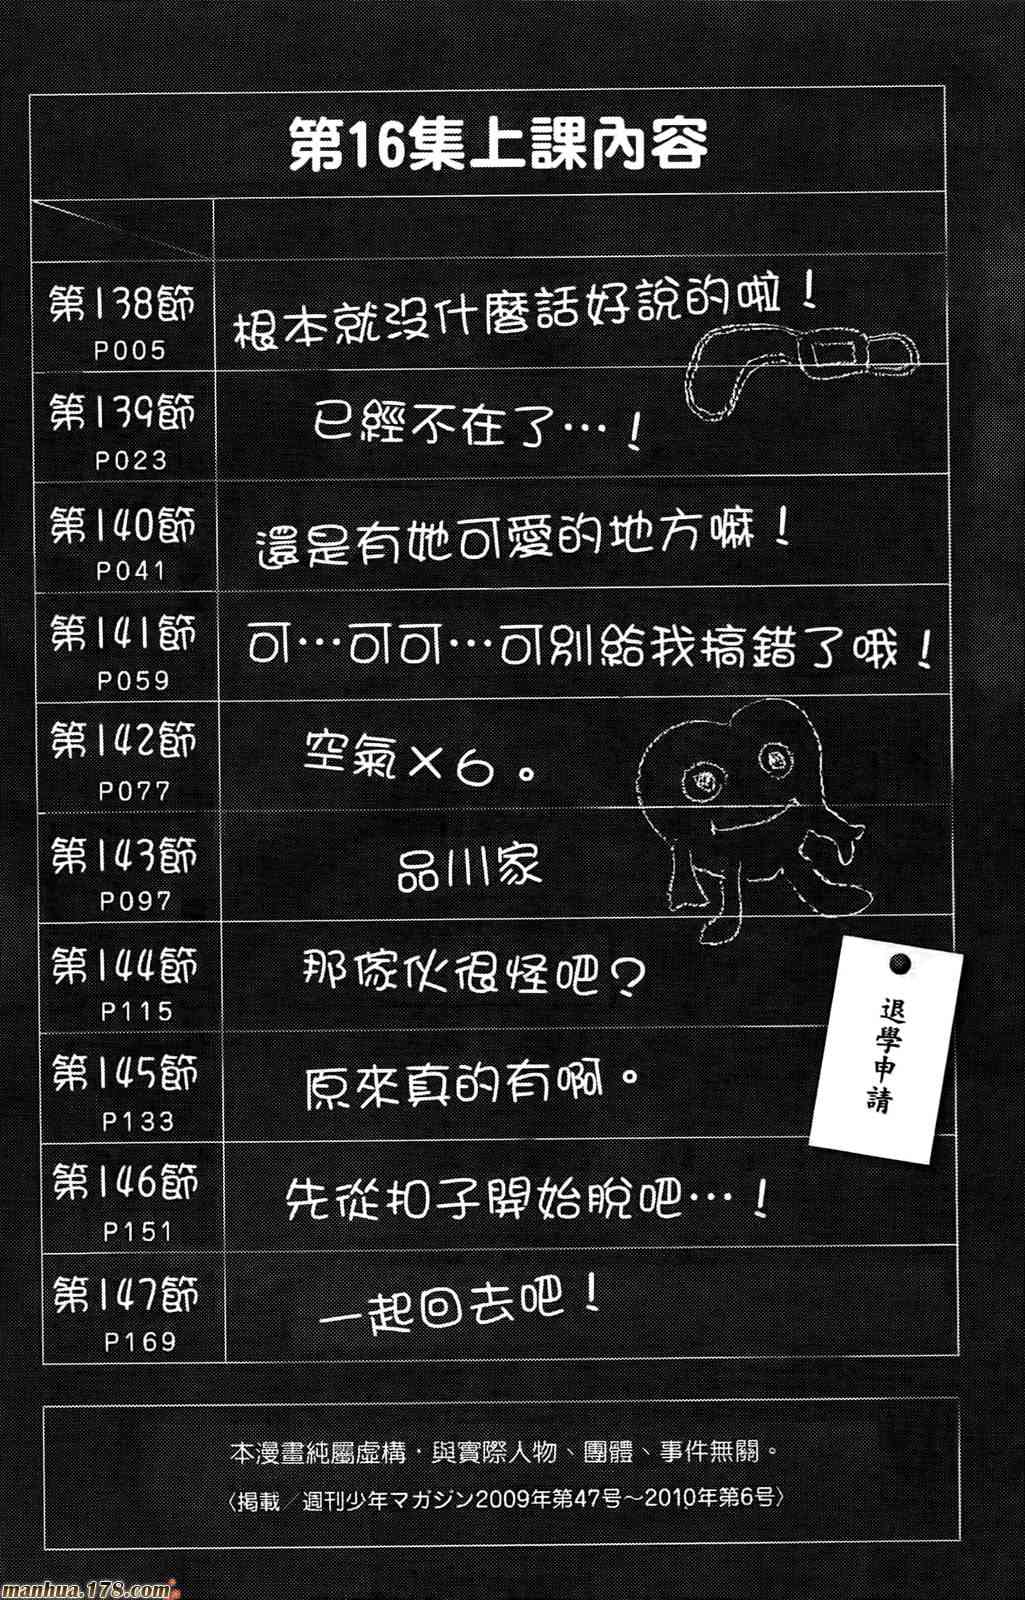 第16集上課內容
第138節
P005
根本就沒什麼話好說的啦！
第139節
P023
已經不在了…！
第140節
P041
還是有她可愛的地方嘛！
第141節
P059
可…可可…可別給我搞錯了哦！
第142節
P077
空氣×6。
第143節
P097
品川家
第144節
P115
那傢伙很怪吧？
第145節
P133
原來真的有啊。
第146節
P151
先從扣子開始脫吧…！
第147節
P169
一起回去吧！
退學申請
本漫畫純屬虛構．與實際人物、團體、事件無關。
〈掲載／週刊少年マガジン2009年第47号～2010年第6号〉
manhua.178.com